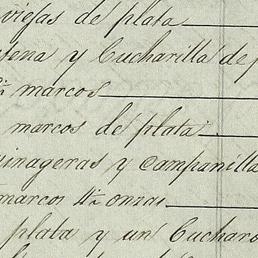 viejas de plata
tena y Cucharilla de p
marcos
marcos de plata
inageras y campanilla
marcos 4½ onzas
plata y un Cucharo